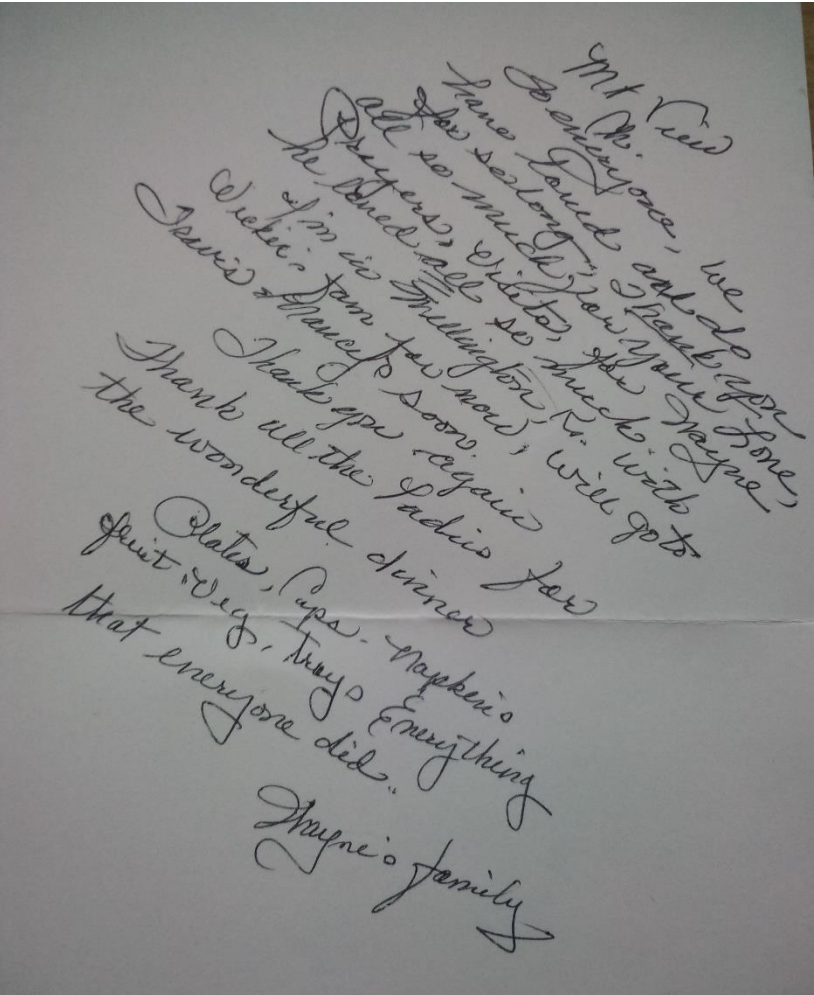 Mt View
Ch.
To everyone, we
have loved and do
for so long, Thank you
all so much for your Love,
Prayers, Visits, for Wayne
he loved all so much.
I'm in Millington, with
fam for now, will go to
Travis & Nancy's soon.
Thank you again
Thank all the Ladies for
the wonderful dinner
Plates, Cups - Napkins
fruit, Veg, trays Everything
that everyone did.
Wayne's family